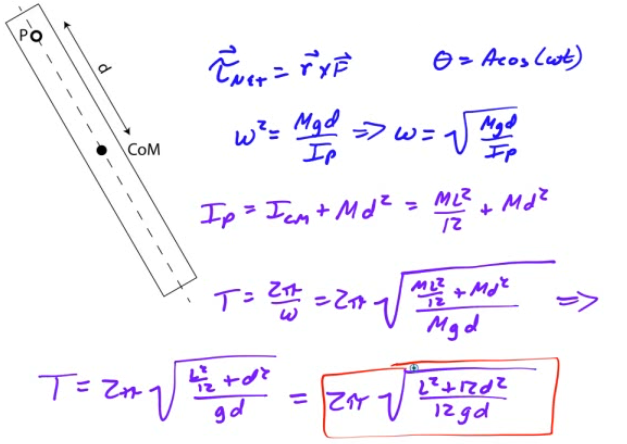 P
d
CoM
τ⃗_Net = r⃗ x F⃗    θ = Acos(ωt)
ω² = Mgd/I_P => ω = √(Mgd/I_P)
I_P = I_CM + Md² = ML²/12 + Md²
T = 2π/ω = 2π √((ML²/12 + Md²)/(Mgd)) =>
T = 2π √((L²/12 + d²)/(gd)) = 2π √((L² + 12d²)/(12gd))